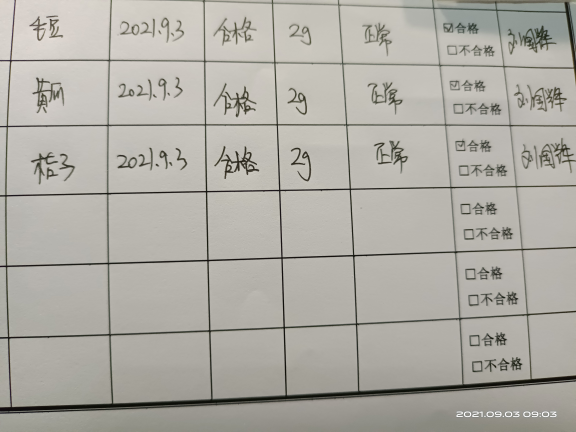 毛豆 2021.9.3 合格 2g 正常 ☑合格 刘国辉
□不合格
黄瓜 2021.9.3 合格 2g 正常 ☑合格 刘国辉
□不合格
桔子 2021.9.3 合格 2g 正常 ☑合格 刘国辉
□不合格
□合格
□不合格
□合格
□不合格
□合格
□不合格
2021.09.03 09:03